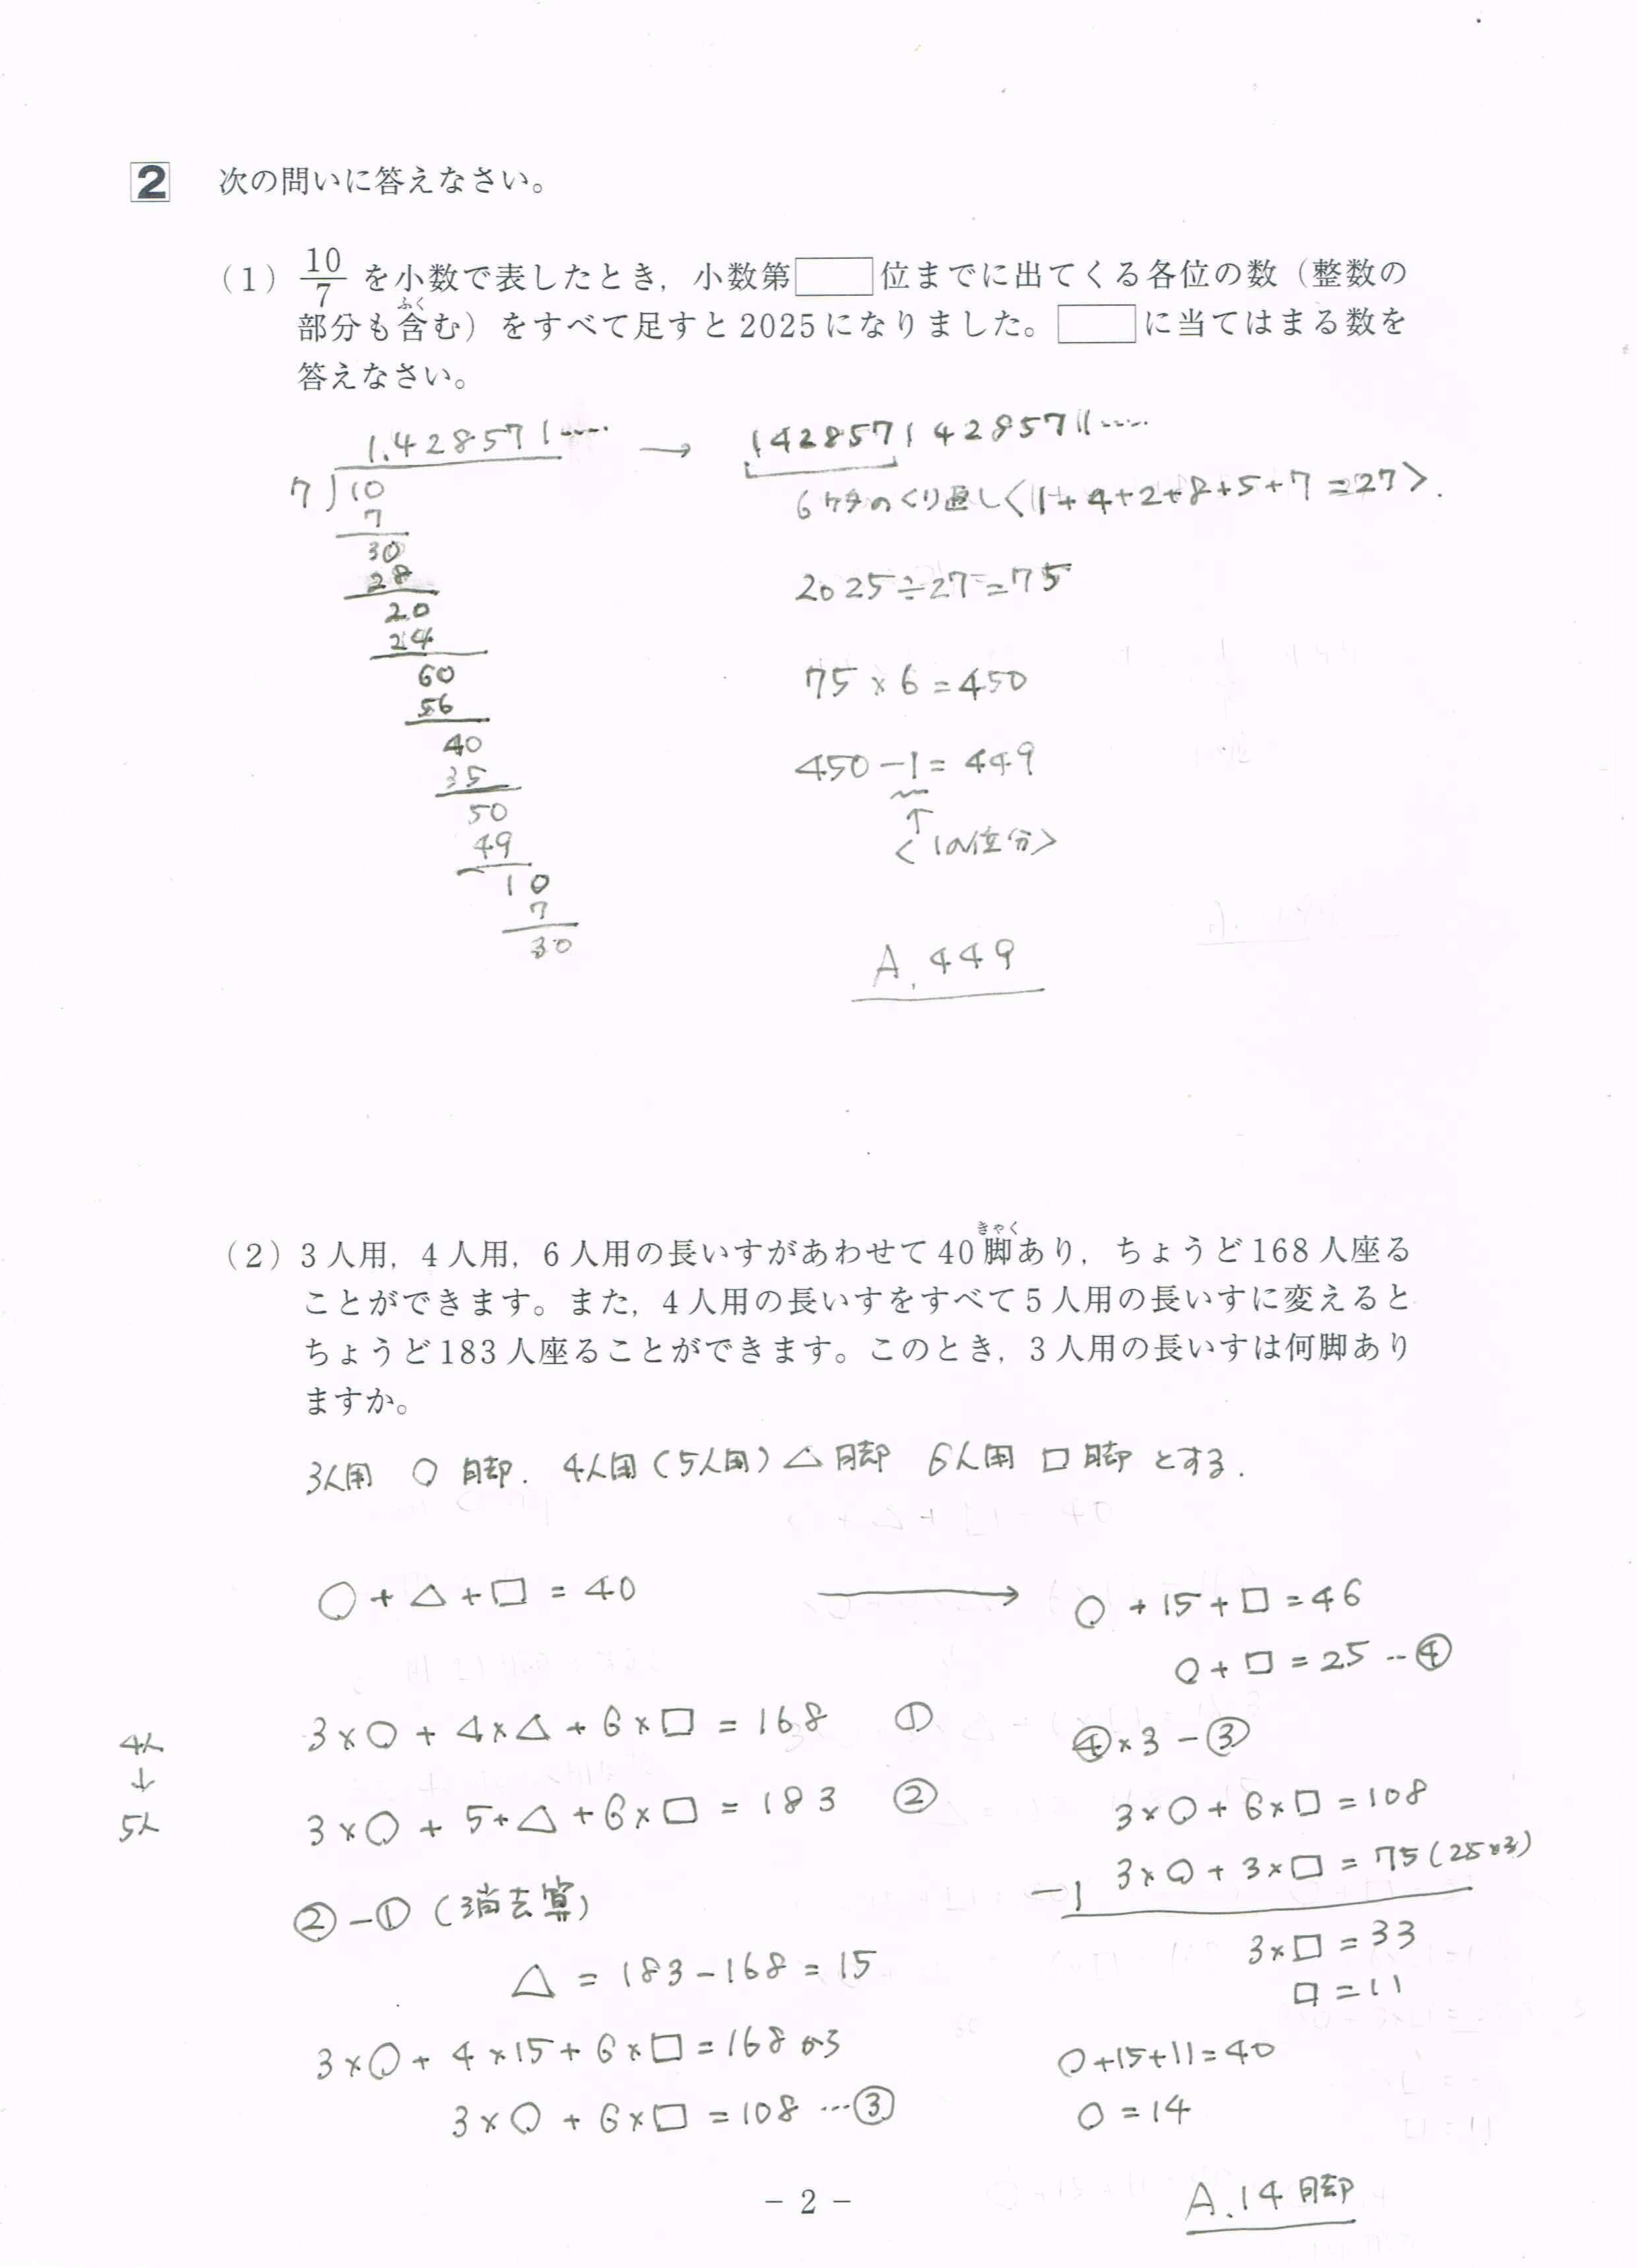 2 次の問いに答えなさい。
(1) 10/7 を小数で表したとき，小数第□位までに出てくる各位の数（整数の
部分も含む）をすべて足すと2025になりました。□に当てはまる数を
ふく
答えなさい。
1.428571‥‥
7)10
7
30
28
20
24
60
56
40
35
50
49
10
7
30
→ 142857142857‥‥
6ケタのくり返し〈1+4+2+8+5+7=27〉.
2025÷27=75
75×6=450
450-1=449
↑
〈1の位分〉
A. 449
(2) 3人用，4人用，6人用の長いすがあわせて40脚あり，ちょうど168人座る
きゃく
ことができます。また，4人用の長いすをすべて5人用の長いすに変えると
ちょうど183人座ることができます。このとき，3人用の長いすは何脚あり
ますか。
3人用 ○脚. 4人用(5人用)△脚 6人用 □脚 とする.
○+△+□=40
3×○+4×△+6×□=168 ①
4人
↓
5人
3×○+5+△+6×□=183 ②
②-①(消去算)
△=183-168=15
3×○+4×15+6×□=168 から
3×○+6×□=108 …③
→ ○+15+□=46
○+□=25 …④
④×3-③
3×○+6×□=108
-) 3×○+3×□=75(25×3)
3×□=33
□=11
○+15+11=40
○=14
A. 14脚
- 2 -